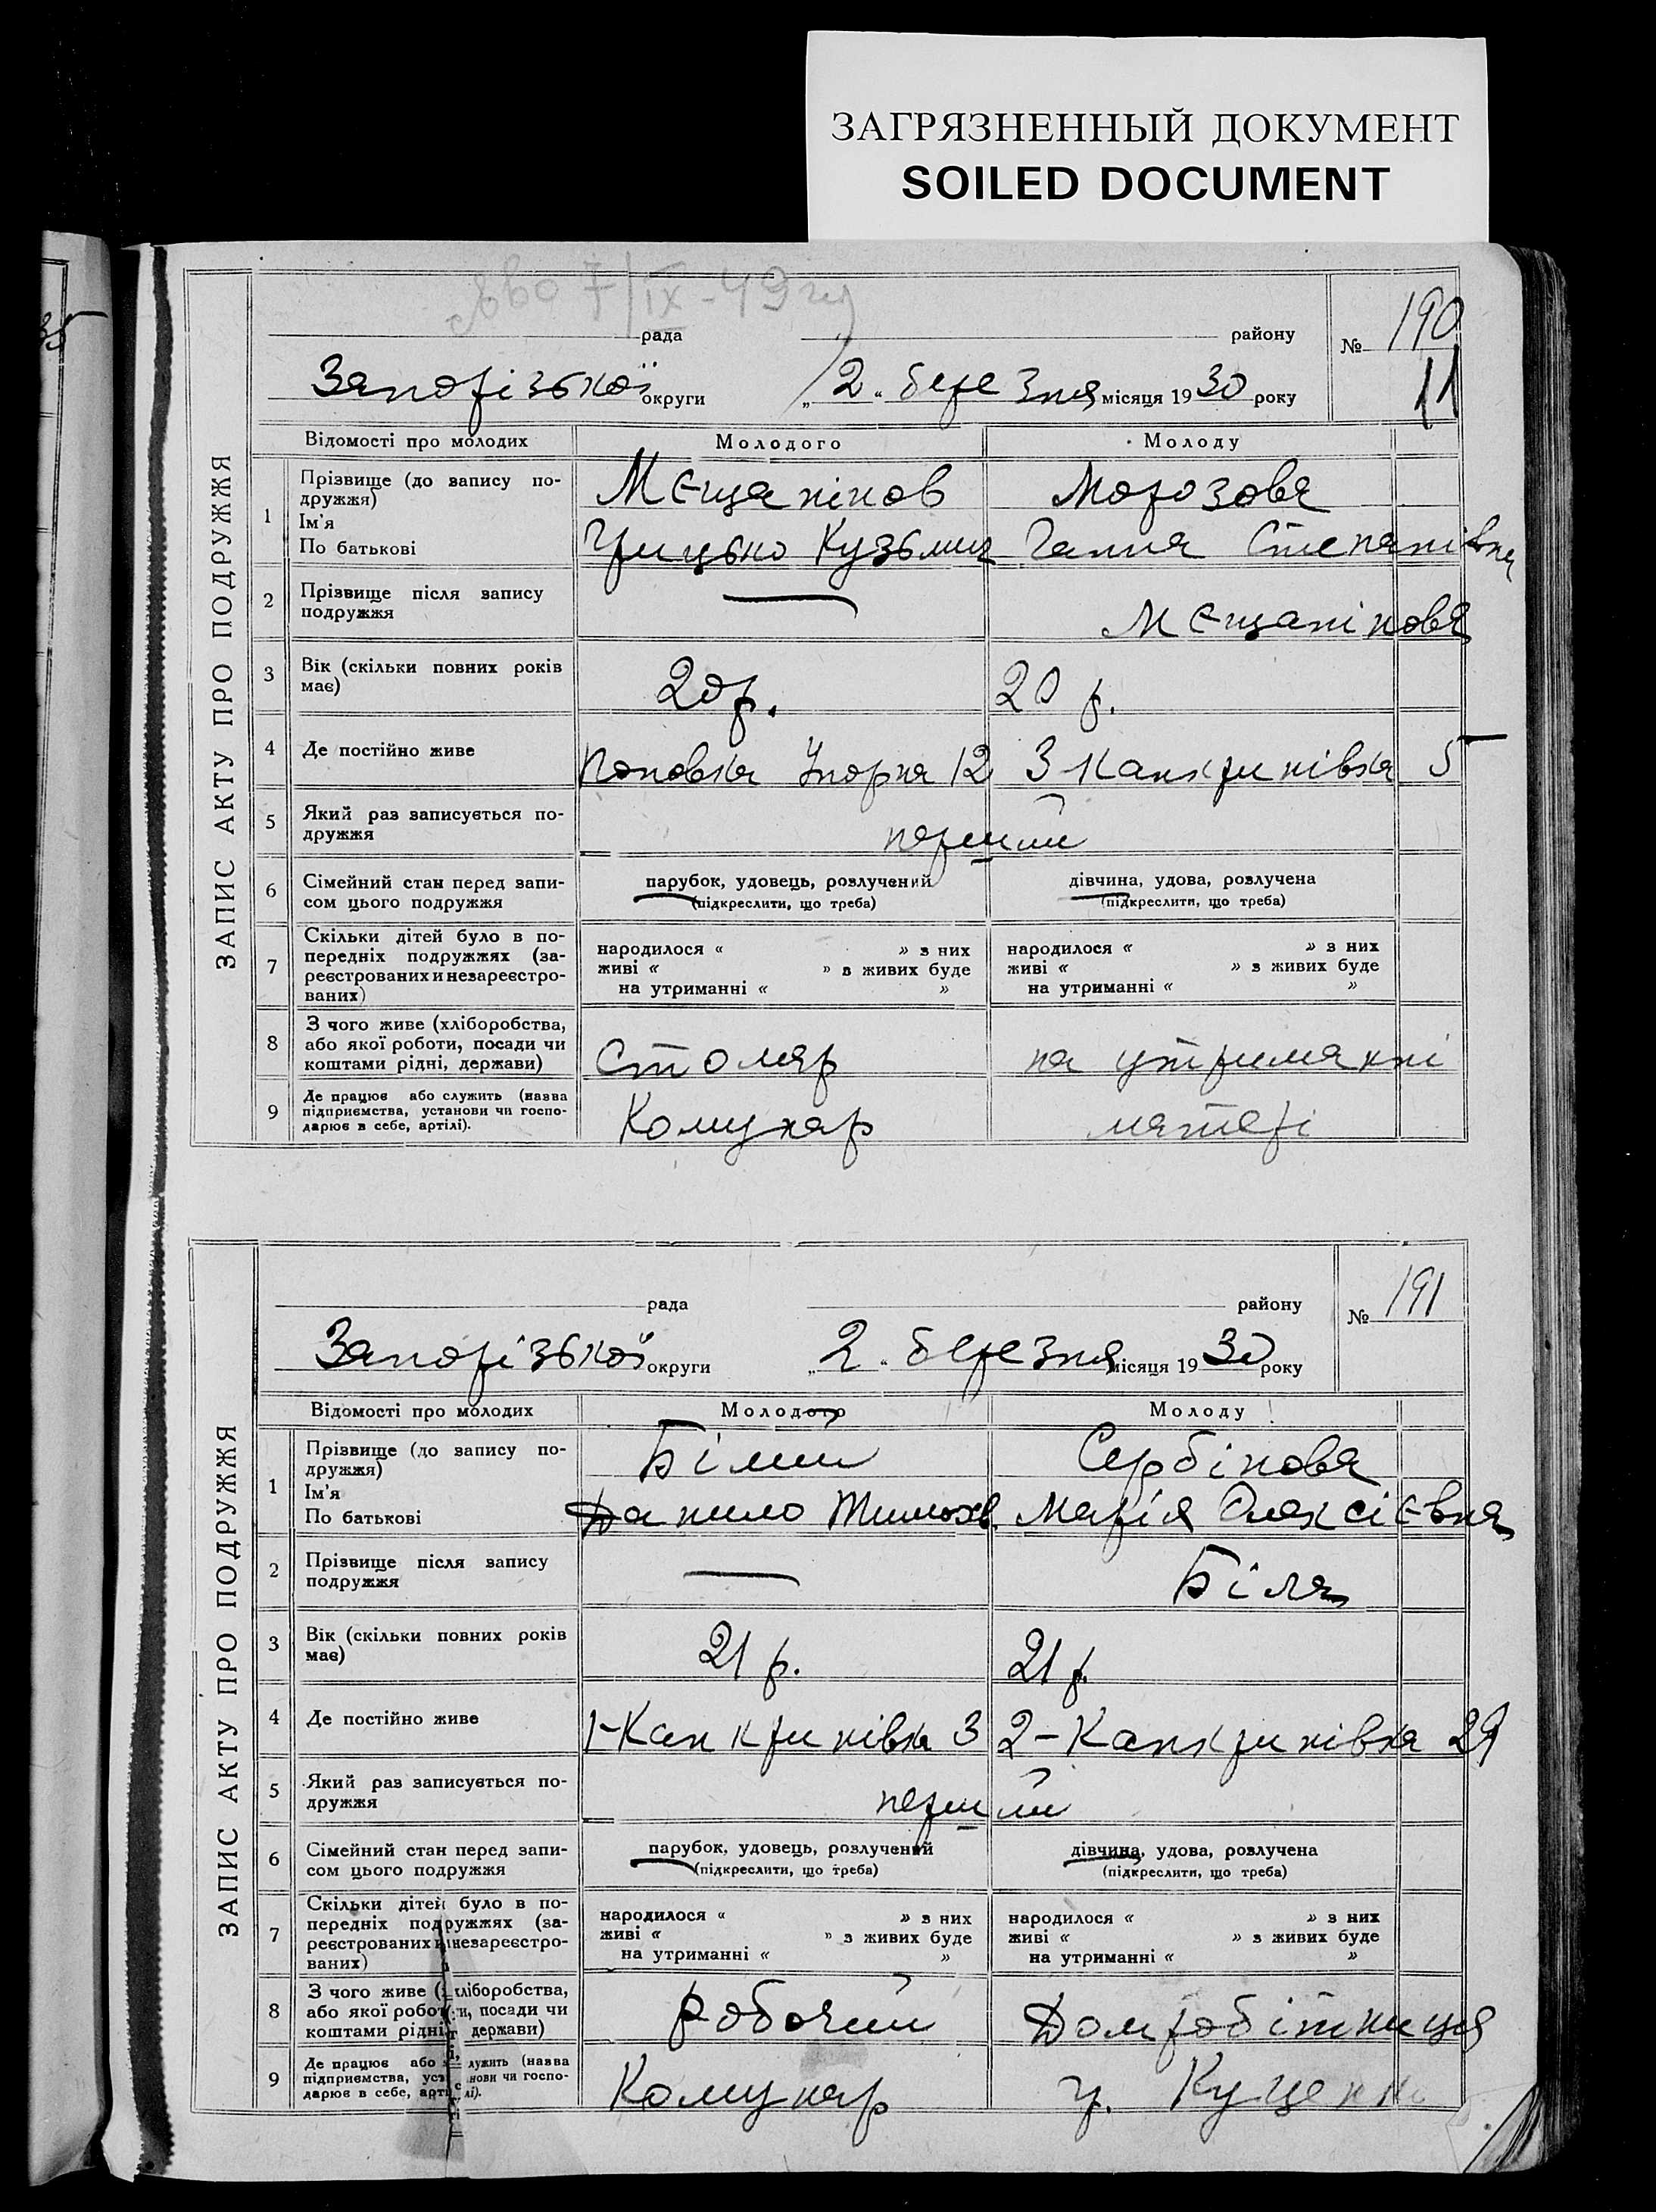 ЗАГРЯЗНЕННЫЙ ДОКУМЕНТ
SOILED DOCUMENT
7/IX-49
рада району № 190
Запорізької округи „ 2 “ березня місяця 1930 року 11
ЗАПИС АКТУ ПРО ПОДРУЖЖЯ
Відомості про молодих Молодого Молоду
1 Прізвище (до запису по-
дружжя) Мєщанінов Морозова
Ім'я
По батькові Грицько Кузьмич Ганна Степанівна
2 Прізвище після запису
подружжя — Мєщанінова
3 Вік (скільки повних років
має) 20 р. 20 р.
4 Де постійно живе Поповка 12 3 Канкринівка 5
5 Який раз записується по-
дружжя перший
6 Сімейний стан перед запи-
сом цього подружжя
парубок, удовець, розлучений
(підкреслити, що треба)
дівчина, удова, розлучена
(підкреслити, що треба)
7 Скільки дітей було в по-
передніх подружжях (за-
реєстрованих и незареєстро-
ваних)
народилося « » з них
живі « » з живих буде
на утриманні « »
народилося « » з них
живі « » з живих буде
на утриманні « »
8 З чого живе (хліборобства,
або якої роботи, посади чи
коштами рідні, держави) Столяр на утриманні
9 Де працює або служить (назва
підприємства, установи чи госпо-
дарює в себе, артілі). Комунар матері
рада району № 191
Запорізької округи „ 2 “ березня місяця 1930 року
ЗАПИС АКТУ ПРО ПОДРУЖЖЯ
Відомості про молодих Молодого Молоду
1 Прізвище (до запису по-
дружжя) Білий Сербінова
Ім'я
По батькові Данило Тимохв. Марія Олексієвна
2 Прізвище після запису
подружжя — Біла
3 Вік (скільки повних років
має) 21 р. 21 р.
4 Де постійно живе 1-Канкринівка 3 2-Канкринівка 29
5 Який раз записується по-
дружжя перший
6 Сімейний стан перед запи-
сом цього подружжя
парубок, удовець, розлучений
(підкреслити, що треба)
дівчина, удова, розлучена
(підкреслити, що треба)
7 Скільки дітей було в по-
передніх подружжях (за-
реєстрованих и незареєстро-
ваних)
народилося « » з них
живі « » з живих буде
на утриманні « »
народилося « » з них
живі « » з живих буде
на утриманні « »
8 З чого живе (хліборобства,
або якої роботи, посади чи
коштами рідні, держави) Робочий Домробітниця
9 Де працює або служить (назва
підприємства, установи чи госпо-
дарює в себе, артілі). Комунар у. Куценко